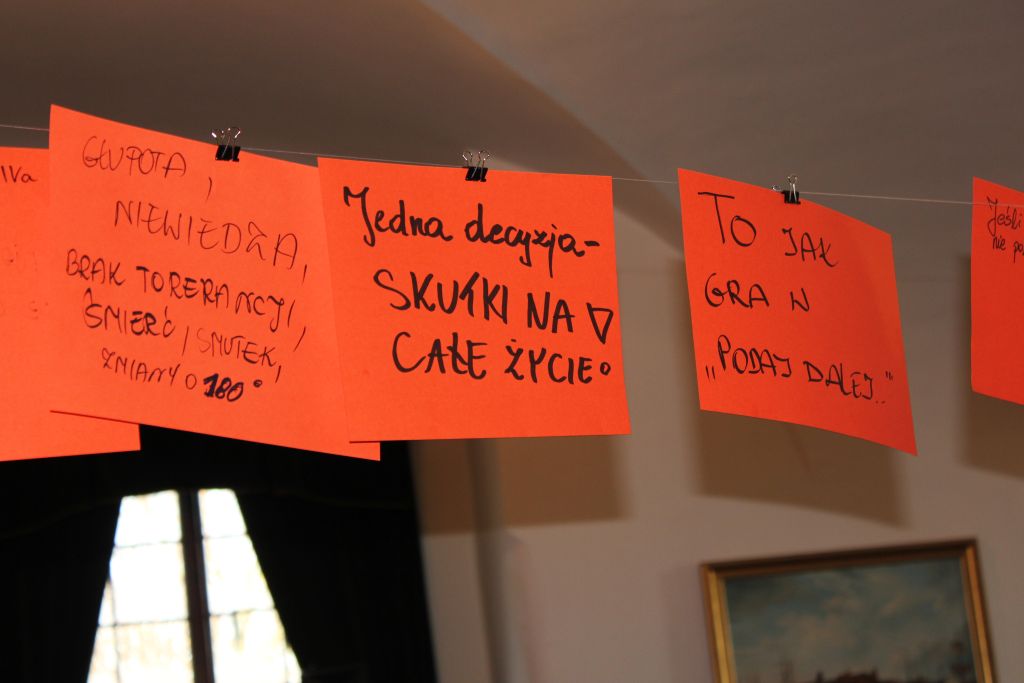 GŁUPOTA,
NIEWIEDZA,
BRAK TORERANCJI,
ŚMIERĆ, SMUTEK,
ZMIANY O 180°
Jedna decyzja-
SKUTKI NA
CAŁE ŻYCIE!
TO JAK
GRA W
„PODAJ DALEJ..”
Jeśli
nie